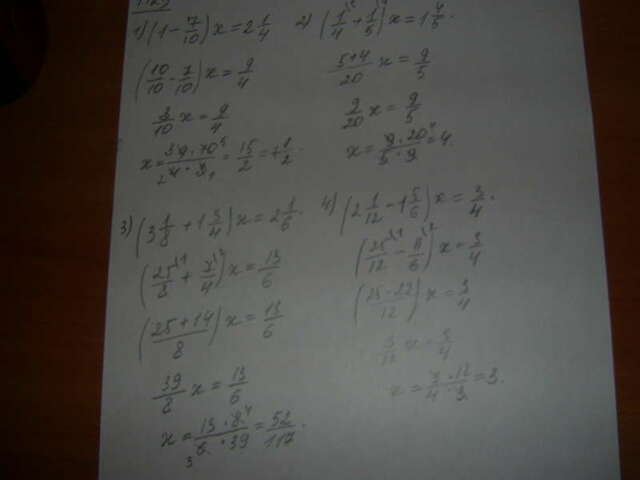 1) (1 - 7/10) x = 2 1/4
(10/10 - 7/10) x = 9/4
3/10 x = 9/4
x = 9·10/4·3 = 15/2 = 7 1/2.
2) (1/4 + 1/5) x = 1 4/5.
5+4/20 x = 9/5
9/20 x = 9/5
x = 9·20/5·9 = 4.
3) (3 1/8 + 1 3/4) x = 2 1/6.
(25/8 + 7/4) x = 13/6
(25+14/8) x = 13/6
39/8 x = 13/6
x = 13·8/6·39 = 52/117.
4) (2 1/12 - 1 5/6) x = 3/4.
(25/12 - 11/6) x = 3/4
(25-22/12) x = 3/4
3/12 x = 3/4
x = 3/4 · 12/3 = 3.